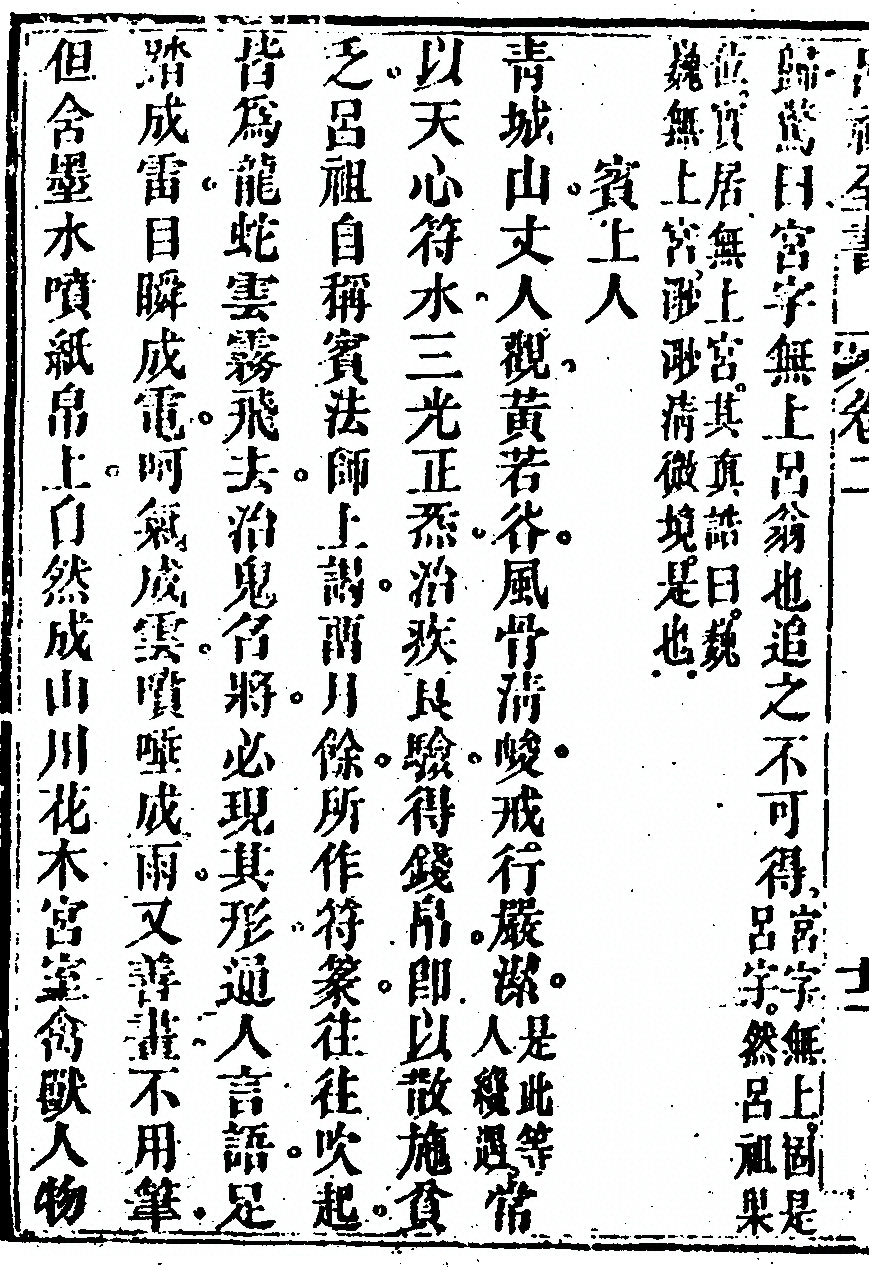 呂祖全書 卷二 十二
歸驚曰宮字無上呂翁也追之不可得宮字無上固是
呂字然呂祖果
位實居無上宮其真誥曰巍
巍無上宮渺渺清微境是也
賓上人
青城山丈人觀黃若谷風骨清峻戒行嚴潔是此等
人纔遇常
以天心符水三光正炁治疾良驗得錢帛卽以散施貧
乏呂祖自稱賓法師上謁留月餘所作符篆往往吹起
皆爲龍蛇雲霧飛去治鬼名將必現其形通人言語足
踏成雷目瞬成電呵氣成雲噴唾成雨又善畫不用筆
但含墨水噴紙帛上自然成山川花木宮室禽獸人物